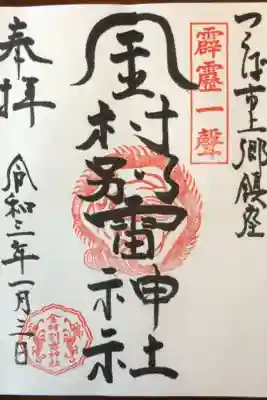 つくば市上郷鎮座
霹靂一聲
金村別雷神社
奉拝
令和三年一月三日
金村別雷神社